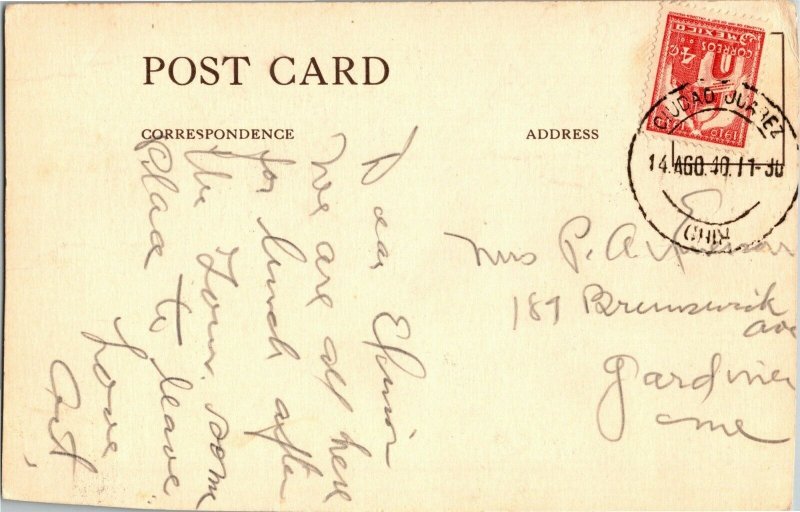 POST CARD
CORRESPONDENCE
ADDRESS
Dear
We are all here
for lunch after
the Tour. some
Place to leave
Love
Art
MEXICO
CORREOS
4¢
1910
CIUDAD JUAREZ
14.AGO.40.11-30
CHIH
Mrs P. A.
189 Brunswick
ave
Gardiner
me